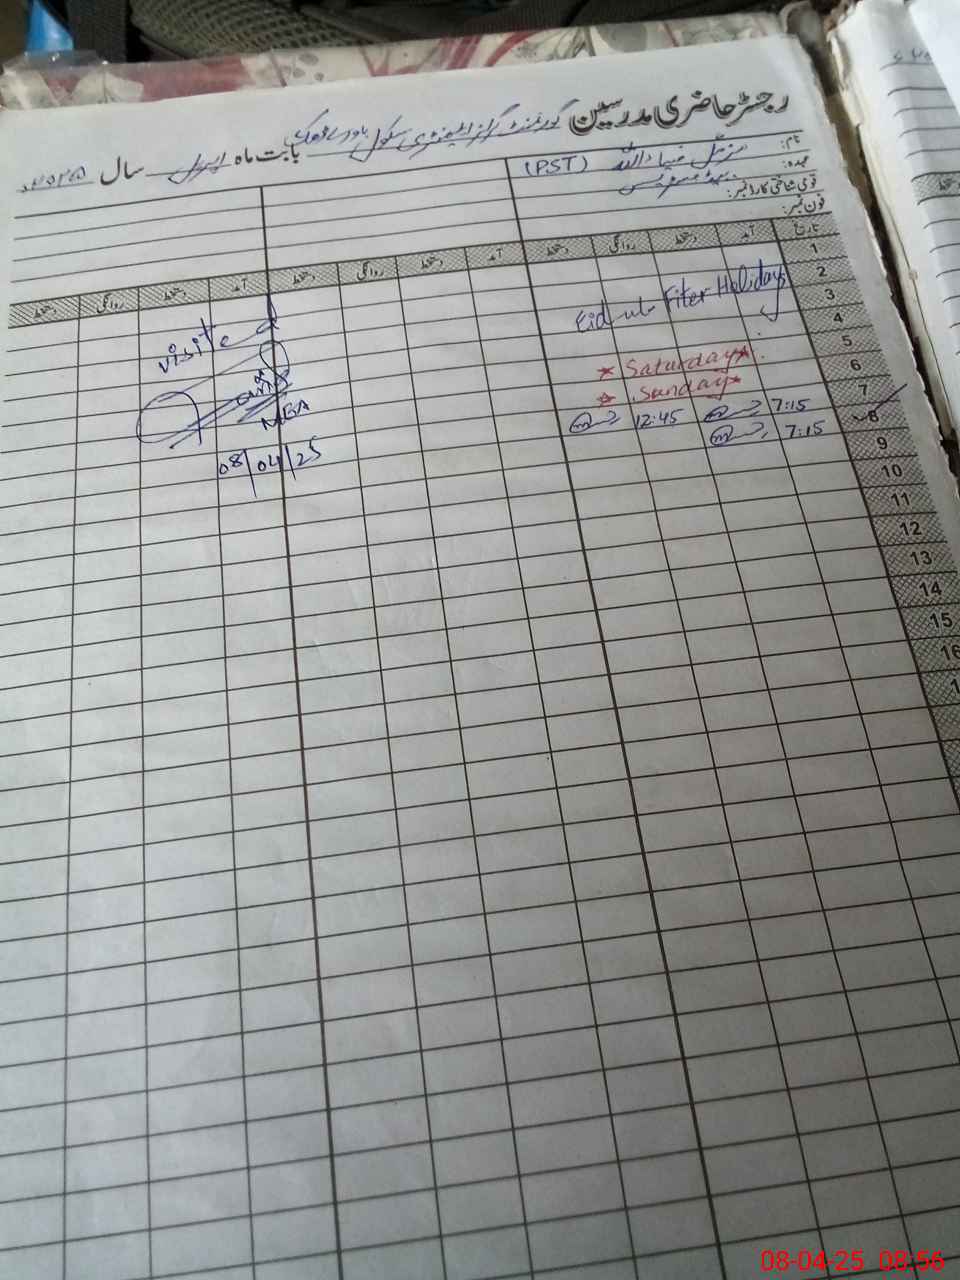 رجسٹر حاضری مدرسین گورنمنٹ گرلز ایلیمنٹری سکول بابت ماہ اپریل سال ۲۰۲۵
نام: مزمل ضیاء اللہ (PST)
عہدہ:
قومی شناختی کارڈ نمبر:
فون نمبر:
تاریخ آمد دستخط روانگی دستخط آمد دستخط روانگی دستخط آمد دستخط روانگی دستخط
1
2
Eid ul Fiter Holidays
3
4
5
* Saturday *
6
* Sunday *
7
7:15 12:45
8
7:15
9
10
11
12
13
14
15
16
1
visite
on
MEA
08/04/25
08-04-25 08:56